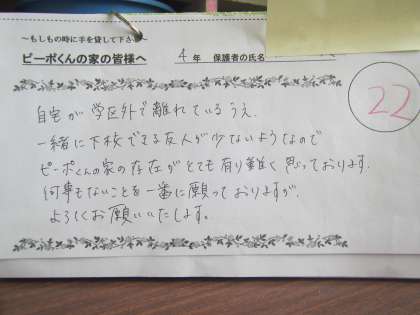 ～もしもの時に手を貸して下さ
ピーポくんの家の皆様へ
4年 保護者の氏名
22
自宅が学区外で離れているうえ、
一緒に下校できる友人が少ないようなので
ピーポくんの家の存在がとても有り難く思っております。
何事もないことを一番に願っておりますが、
よろしくお願いいたします。